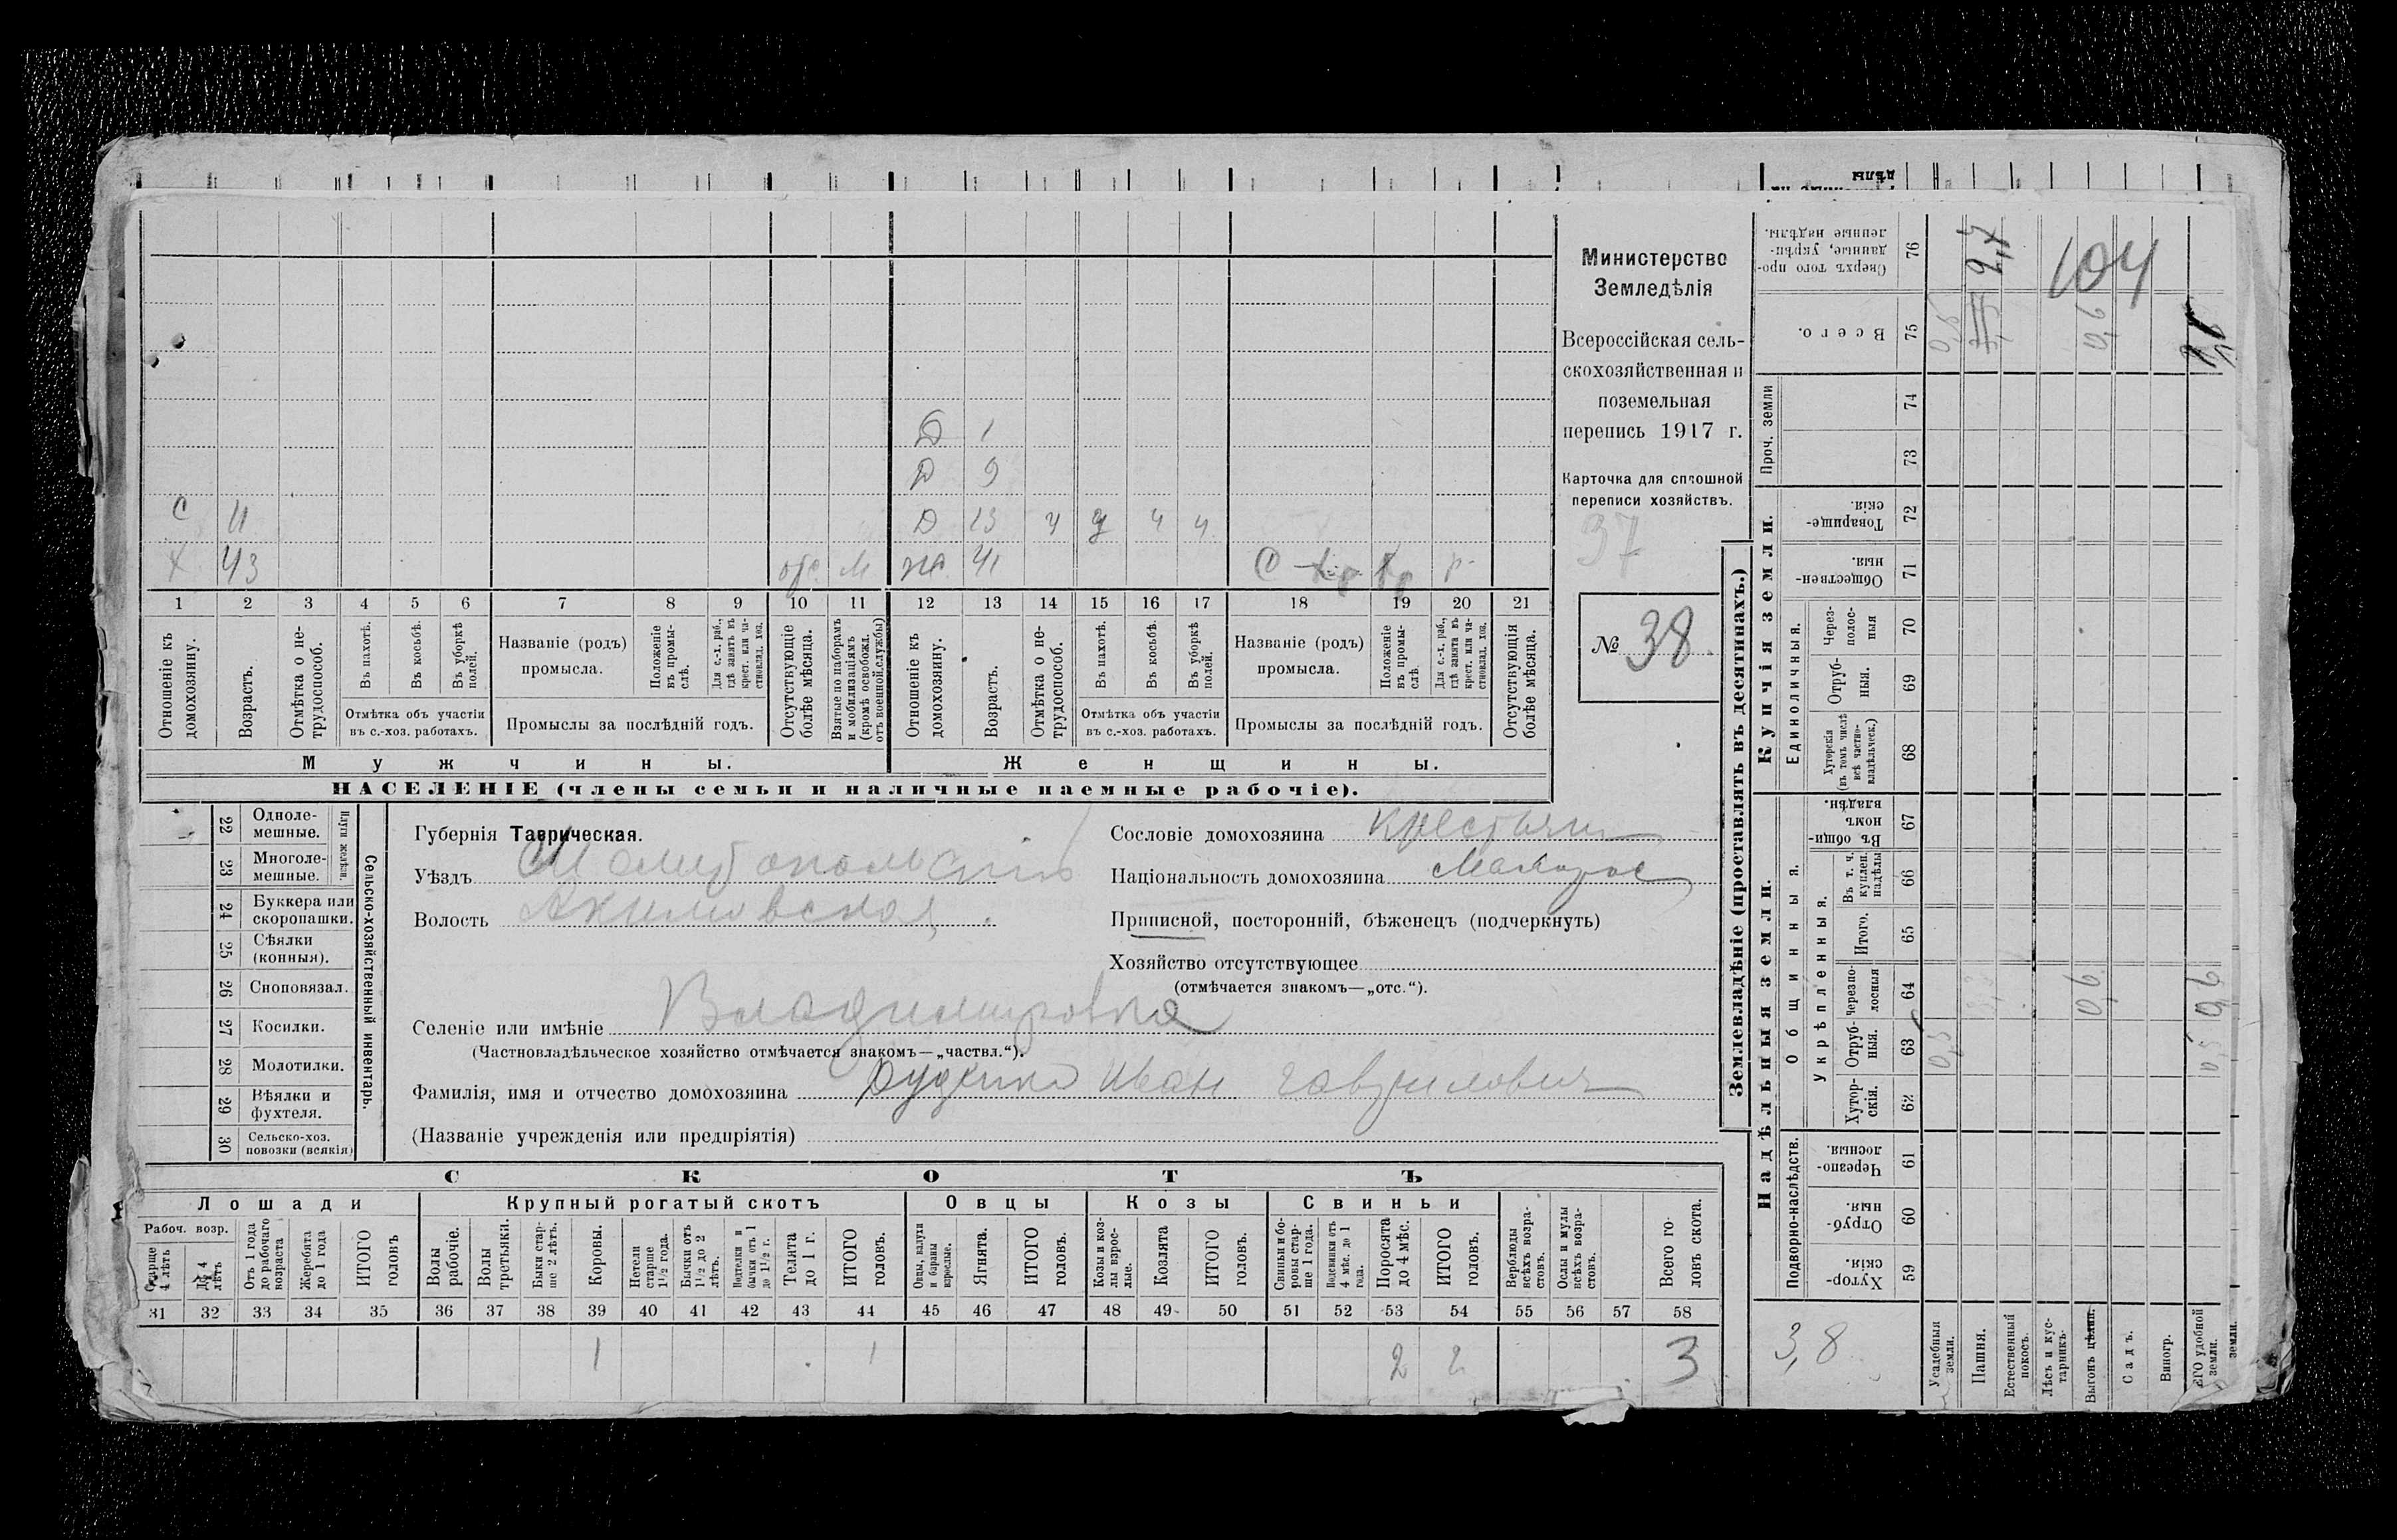 Министерство
Земледѣлія
Всероссійская сель-
скохозяйственная и
поземельная
перепись 1917 г.
Карточка для сплошной
переписи хозяйствъ.
37
№ 38
Д 1
Д 9
С 11 Д 13 ч ч ч
Х 43 отс. М Ж 41 С р
1 2 3 4 5 6 7 8 9 10 11 12 13 14 15 16 17 18 19 20 21
Отношеніе къ домохозяину.
Возрастъ.
Отмѣтка о не-трудоспособ.
Въ пахотѣ.
Въ косьбѣ.
Въ уборкѣ полей.
Отмѣтка объ участіи
въ с.-хоз. работахъ.
Названіе (родъ)
промысла.
Положеніе въ промы-слѣ.
Для с.-х. раб., гдѣ занятъ въ крест. или ча-стновлад. хоз.
Промыслы за послѣдній годъ.
Отсутствующіе болѣе мѣсяца.
Взятые по наборамъ и мобилизаціямъ (кромѣ освобожд. отъ военной службы)
Отношеніе къ домохозяину.
Возрастъ.
Отмѣтка о не-трудоспособ.
Въ пахотѣ.
Въ косьбѣ.
Въ уборкѣ полей.
Отмѣтка объ участіи
въ с.-хоз. работахъ.
Названіе (родъ)
промысла.
Положеніе въ промы-слѣ.
Для с.-х. раб., гдѣ занята въ крест. или ча-стновлад. хоз.
Промыслы за послѣдній годъ.
Отсутствующія болѣе мѣсяца.
Мужчины. Женщины.
НАСЕЛЕНІЕ (члены семьи и наличные наемные рабочіе).
Сельско-хозяйственный инвентарь.
Плуги желѣзн.
22 Одноле-мешные.
23 Многоле-мешные.
24 Буккера или скоропашки.
25 Сѣялки (конныя).
26 Сноповязал.
27 Косилки.
28 Молотилки.
29 Вѣялки и фухтеля.
30 Сельско-хоз. повозки (всякія)
Губернія Таврическая.
Уѣздъ Мелитопольскій
Волость Акимовская
Сословіе домохозяина Крестьянин
Національность домохозяина Малорос
Приписной, посторонній, бѣженецъ (подчеркнуть)
Хозяйство отсутствующее
(отмѣчается знакомъ—„отс.“).
Селеніе или имѣніе Владимировка
(Частновладѣльческое хозяйство отмѣчается знакомъ—„частвл.“).
Фамилія, имя и отчество домохозяина Руденко Иван Гаврилович
(Названіе учрежденія или предпріятія)
СКОТЪ
Лошади Крупный рогатый скотъ Овцы Козы Свиньи
Рабоч. возр.
Старше 4 лѣтъ
До 4 лѣтъ
Отъ 1 года до рабочаго возраста
Жеребята до 1 года
ИТОГО головъ
Волы рабочіе.
Волы третьяки.
Быки стар-ше 2 лѣтъ.
Коровы.
Нетели старше 1½ года.
Бычки отъ 1½ до 2 лѣтъ.
Подтелки и бычки отъ 1 до 1½ г.
Телята до 1 г.
ИТОГО головъ.
Овцы, валухи и бараны взрослые.
Ягнята.
ИТОГО головъ.
Козы и коз-лы взрос-лые.
Козлята
ИТОГО головъ.
Свиньи и бо-ровы стар-ше 1 года.
Подсвинки отъ 4 мѣс. до 1 года.
Поросята до 4 мѣс.
ИТОГО головъ.
Верблюды всѣхъ возра-стовъ.
Ослы и мулы всѣхъ возра-стовъ.
Всего го-ловъ скота.
31 32 33 34 35 36 37 38 39 40 41 42 43 44 45 46 47 48 49 50 51 52 53 54 55 56 57 58
1 1 2 2 3
Землевладѣніе (проставлять въ десятинахъ.)
Надѣльныя земли. Купчія земли.
Проч. земли
Подворно-наслѣдств.
Общинныя.
Укрѣпленныя.
Единоличныя.
Сверхъ того про-данные, укрѣп-ленные надѣлы. 76
Всего. 75
74
73
Товарище-скія. 72
Обществен-ныя. 71
Через-полос-ныя 70
Отруб-ныя. 69
Хуторскія (въ томъ числѣ всѣ частно-владѣльческ.) 68
Въ общин-номъ владѣн. 67
Въ т. ч. куплен. надѣлы 66
Итого. 65
Черезпо-лосныя 64
Отруб-ныя. 63
Хутор-скія. 62
Черезпо-лосныя. 61
Отруб-ныя. 60
Хутор-скія. 59
104
0,5
0,6
0,5
0,6
3,8
Усадебныя земли.
Пашня.
Естественный покосъ.
Лѣсъ и кус-тарникъ.
Выгонъ цѣлин.
Садъ.
Виногр.
удобной земли.